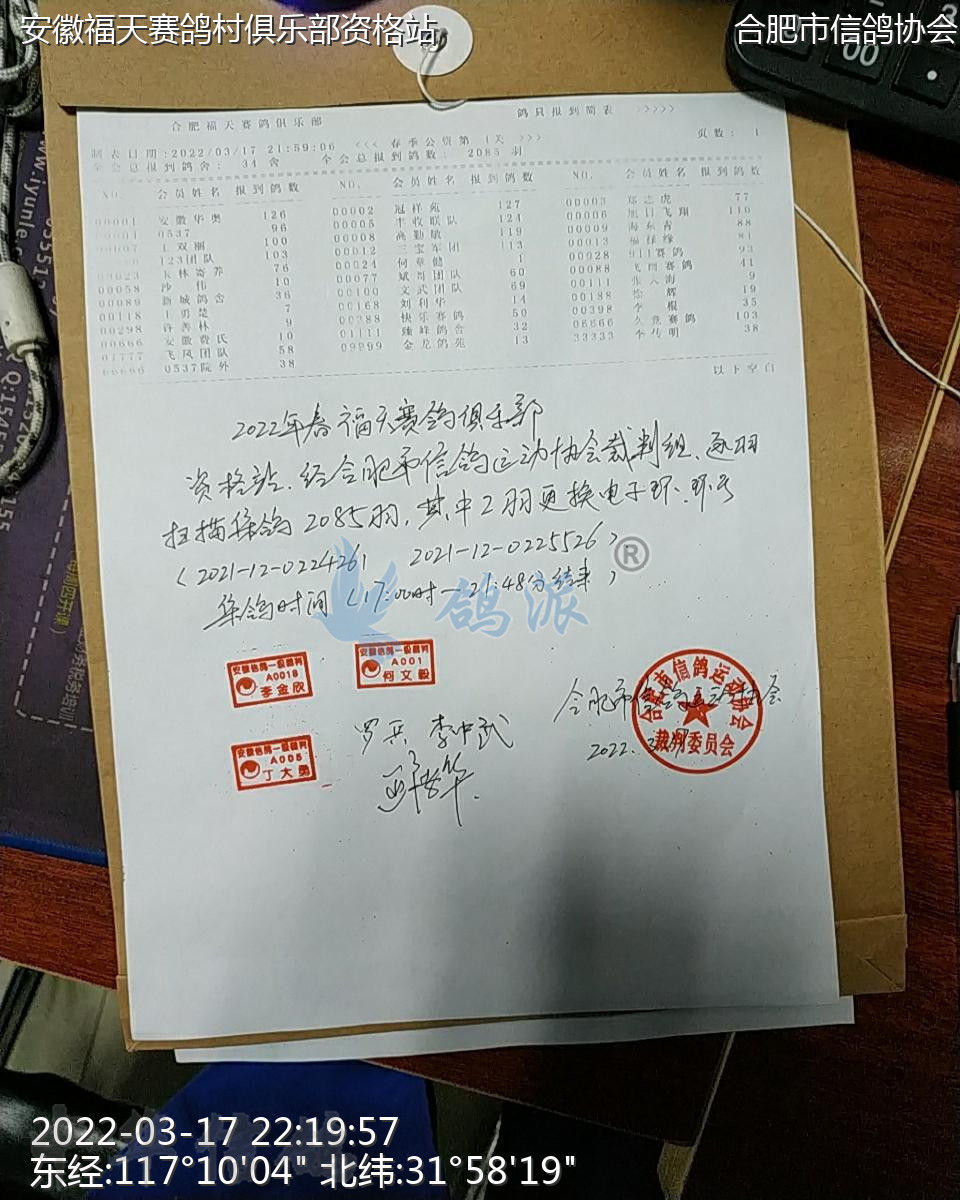 安徽福天赛鸽村俱乐部资格站
合肥市信鸽协会
00
合肥福天赛鸽俱乐部 鸽只报到简表 >>>>>
制表日期:2022/03/17 21:59:06 <<< 春季公资第 1关 >>> 页数: 1
全会总报到鸽舍: 34 舍 全会总报到鸽数: 2085 羽
NO. 会员姓名 报到鸽数 NO. 会员姓名 报到鸽数 NO. 会员姓名 报到鸽数
00001 安徽华奥 126 00002 冠祥苑 127 00003 郑志虎 77
0537 96 00005 丰收联队 124 00006 旭日飞翔 110
王双丽 100 00008 高勤敏 119 00009 海东青 88
123团队 103 00012 三宝军团 113 00013 福祥缘 81
00023 玉林寄养 76 00024 何章健 1 00028 911赛鸽 93
00058 沙伟 10 00077 斌哥团队 60 00088 飞雨赛鸽 41
00089 新城鸽舍 36 00100 文武团队 69 00111 张大海 9
00118 王勇楚 7 00168 刘利华 14 00188 徐辉 19
00298 许善林 9 00388 快乐赛鸽 50 00398 李根 35
00666 安徽费氏 10 01111 臻峰鸽舍 32 06666 久竞赛鸽 103
07777 飞凤团队 58 09999 金龙鸽苑 13 33333 李传明 38
66666 0537院外 38
以下空白
2022年春福天赛鸽俱乐部
资格站、经合肥市信鸽运动协会裁判组、逐羽
扫描集鸽2085羽,其中2羽更换电子环、环号
(2021-12-0224261 2021-12-0225526)
集鸽时间(17:00时—21:48分结束)
鸽派®
安徽信鸽一级裁判
A0018
李金欣
安徽信鸽一级裁判
A001
何文毅
安徽信鸽一级裁判
A005
丁大勇
罗兵 李中武
合肥市信鸽运动协会
2022.3.17
合肥市信鸽运动协会
裁判委员会
www.iyunle.c
2022-03-17 22:19:57
东经:117°10'04" 北纬:31°58'19"